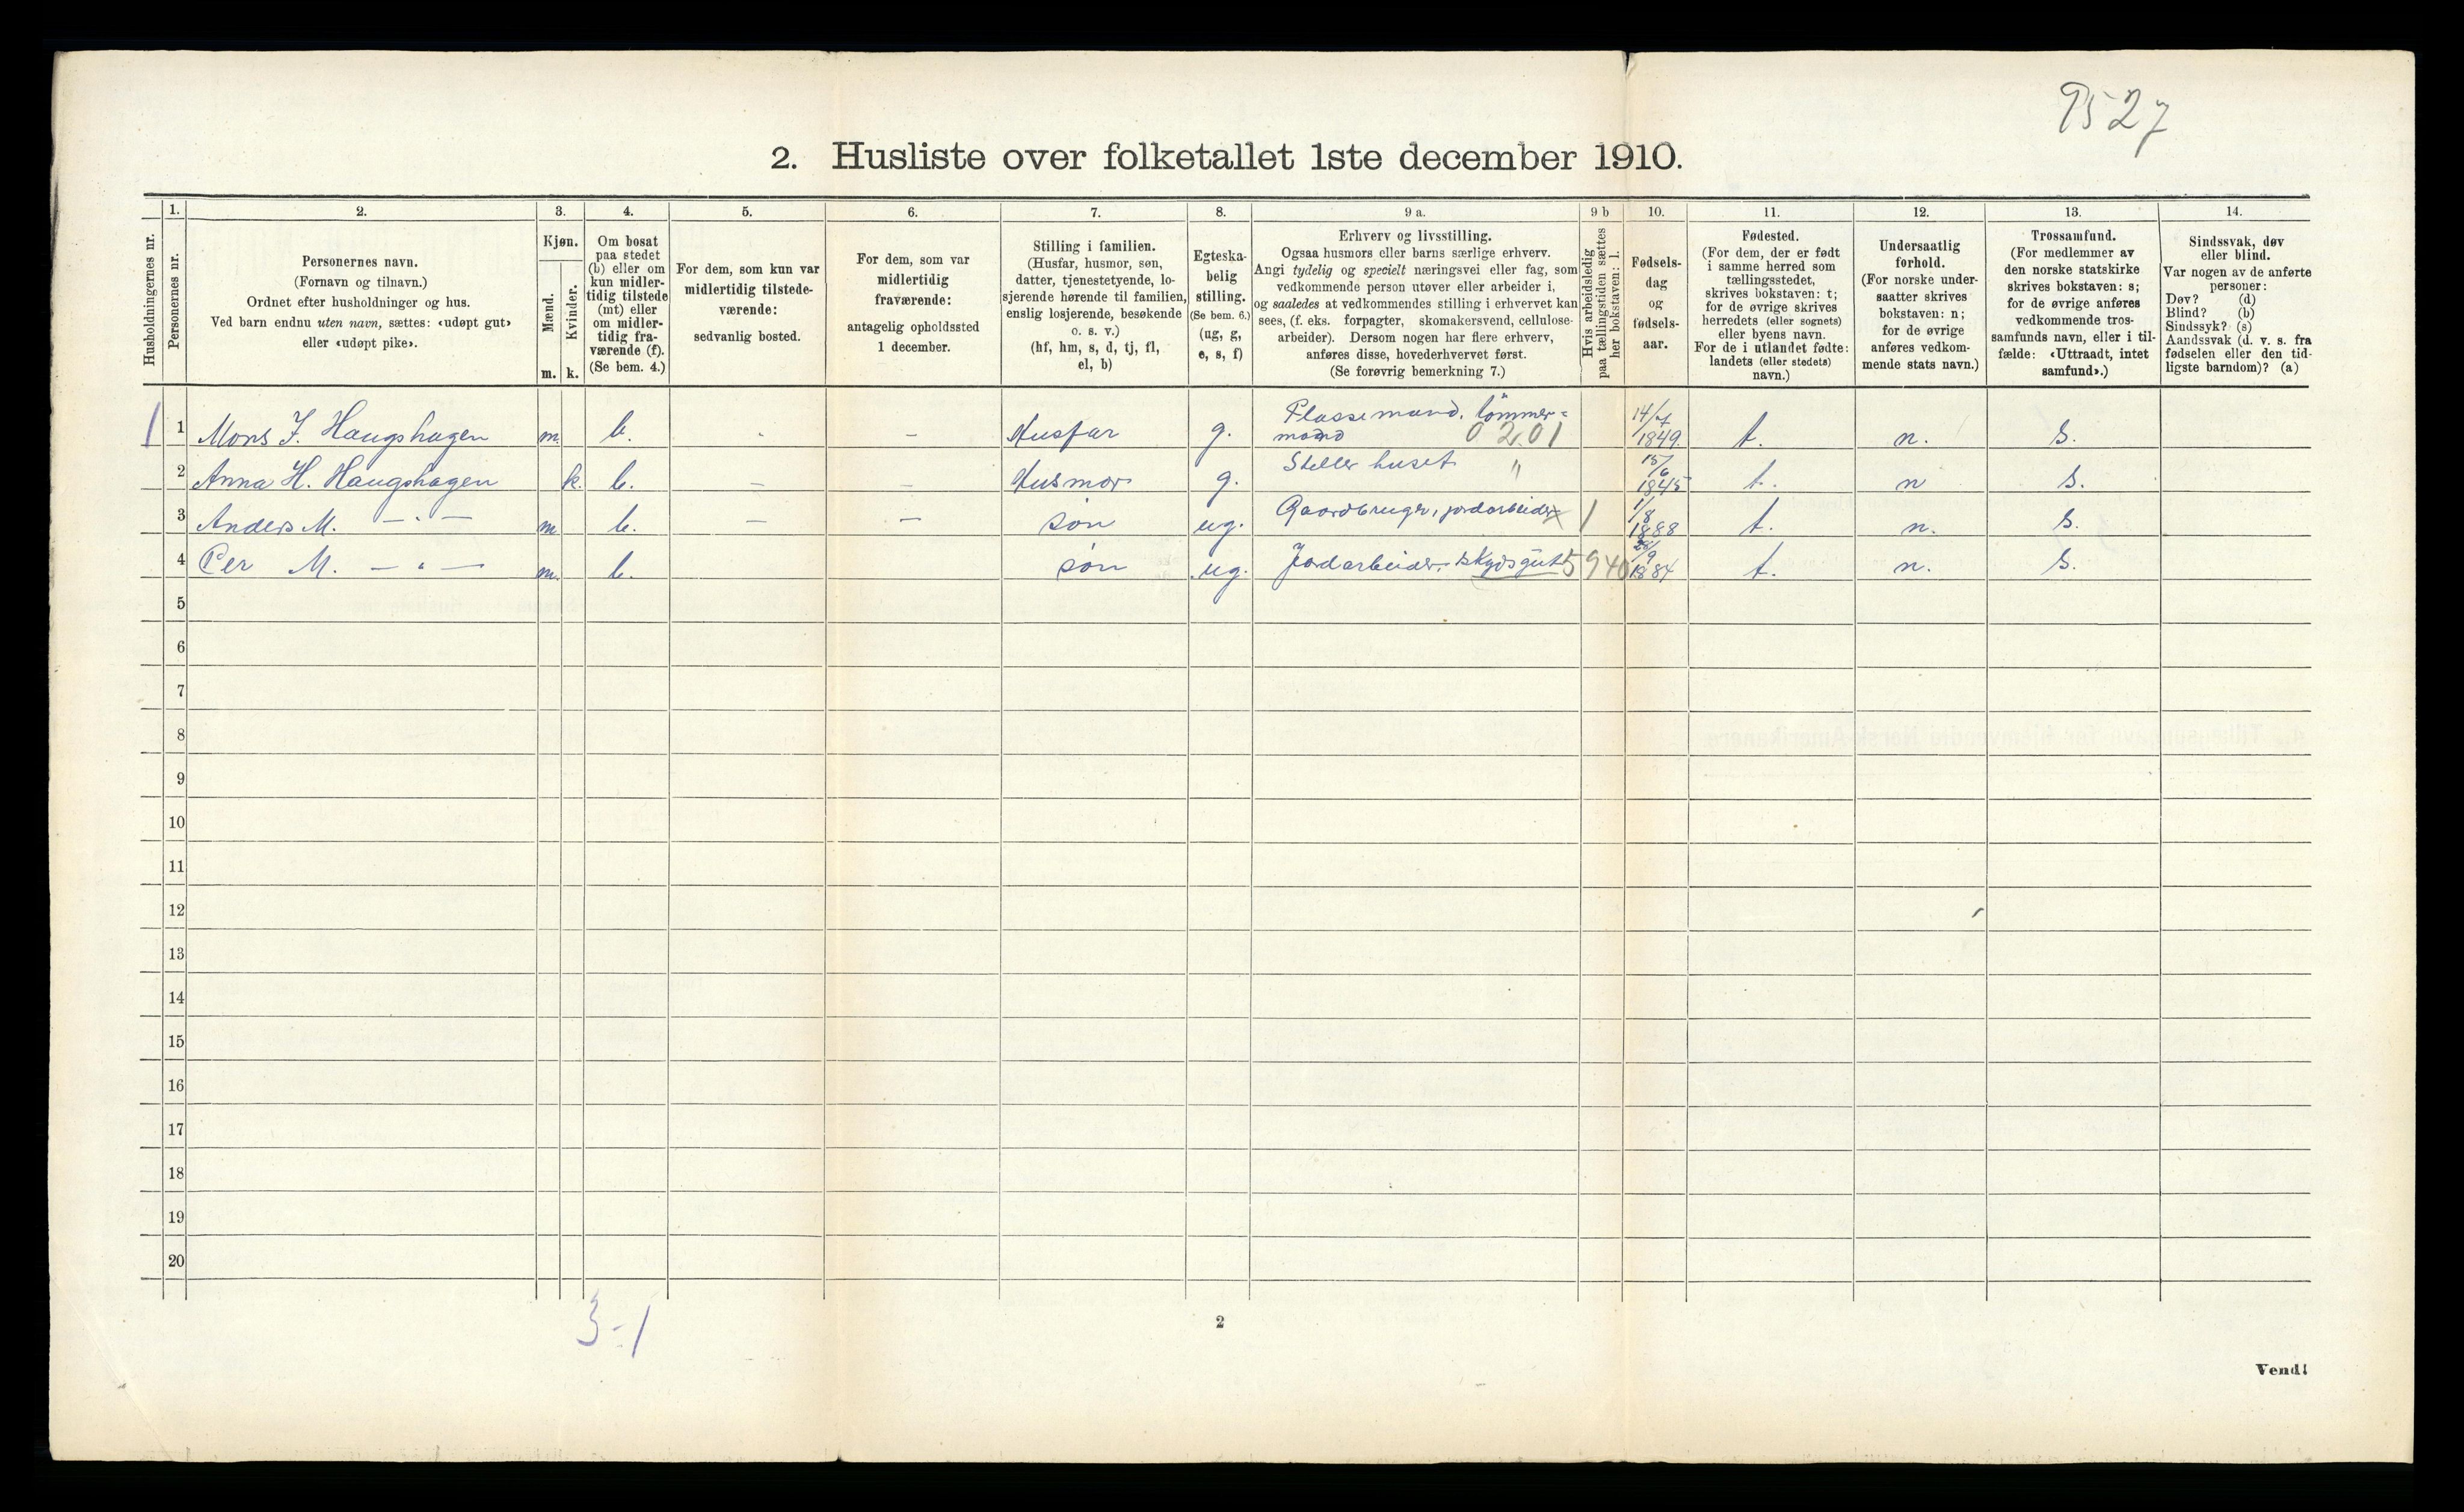 9527
2. Husliste over folketallet 1ste december 1910.
Husholdningernes nr.
1.
Personernes nr.
2.
Personernes navn.
(Fornavn og tilnavn.)
Ordnet efter husholdninger og hus.
Ved barn endnu uten navn, sættes: «udøpt gut»
eller «udøpt pike».
3.
Kjøn.
Mænd.
Kvinder.
m. k.
4.
Om bosat
paa stedet
(b) eller om
kun midler-
tidig tilstede
(mt) eller
om midler-
tidig fra-
værende (f).
(Se bem. 4.)
5.
For dem, som kun var
midlertidig tilstede-
værende:
sedvanlig bosted.
6.
For dem, som var
midlertidig
fraværende:
antagelig opholdssted
1 december.
7.
Stilling i familien.
(Husfar, husmor, søn,
datter, tjenestetyende, lo-
sjerende hørende til familien,
enslig losjerende, besøkende
o. s. v.)
(hf, hm, s, d, tj, fl,
el, b)
8.
Egteska-
belig
stilling.
(Se bem. 6.)
(ug, g,
e, s, f)
9 a.
Erhverv og livsstilling.
Ogsaa husmors eller barns særlige erhverv.
Angi tydelig og specielt næringsvei eller fag, som
vedkommende person utøver eller arbeider i,
og saaledes at vedkommendes stilling i erhvervet kan
sees, (f. eks. forpagter, skomakersvend, cellulose-
arbeider). Dersom nogen har flere erhverv,
anføres disse, hovederhvervet først.
(Se forøvrig bemerkning 7.)
9 b
Hvis arbeidsledig
paa tællingstiden sættes
her bokstaven: l.
10.
Fødsels-
dag
og
fødsels-
aar.
11.
Fødested.
(For dem, der er født
i samme herred som
tællingsstedet,
skrives bokstaven: t;
for de øvrige skrives
herredets (eller sognets)
eller byens navn.
For de i utlandet fødte:
landets (eller stedets)
navn.)
12.
Undersaatlig
forhold.
(For norske under-
saatter skrives
bokstaven: n;
for de øvrige
anføres vedkom-
mende stats navn.)
13.
Trossamfund.
(For medlemmer av
den norske statskirke
skrives bokstaven: s;
for de øvrige anføres
vedkommende tros-
samfunds navn, eller i til-
fælde: «Uttraadt, intet
samfund».)
14.
Sindssvak, døv
eller blind.
Var nogen av de anførte
personer:
Døv? (d)
Blind? (b)
Sindssyk? (s)
Aandssvak (d. v. s. fra
fødselen eller den tid-
ligste barndom)? (a)
1 1 Mons J. Haugshagen m. b. - - Husfar g. Plassemand, tömmer= mand 0201 14/7 1849. t. n. s.
2 Anna H. Haugshagen k. b. - - Husmor g. Steller huset " 15/6 1845 t. n s.
3 Anders M. - " - m b. - - søn ug. Gaardbruger, jordarbeider x 1 1/8 1888 t. n. s.
4 Per M. - " - m. b. søn ug. Jordarbeider, skydsgut 5940 1884 t. n. s.
5
6
7
8
9
10
11
12
13
14
15
16
17
18
19
20
3-1
2
Vend!